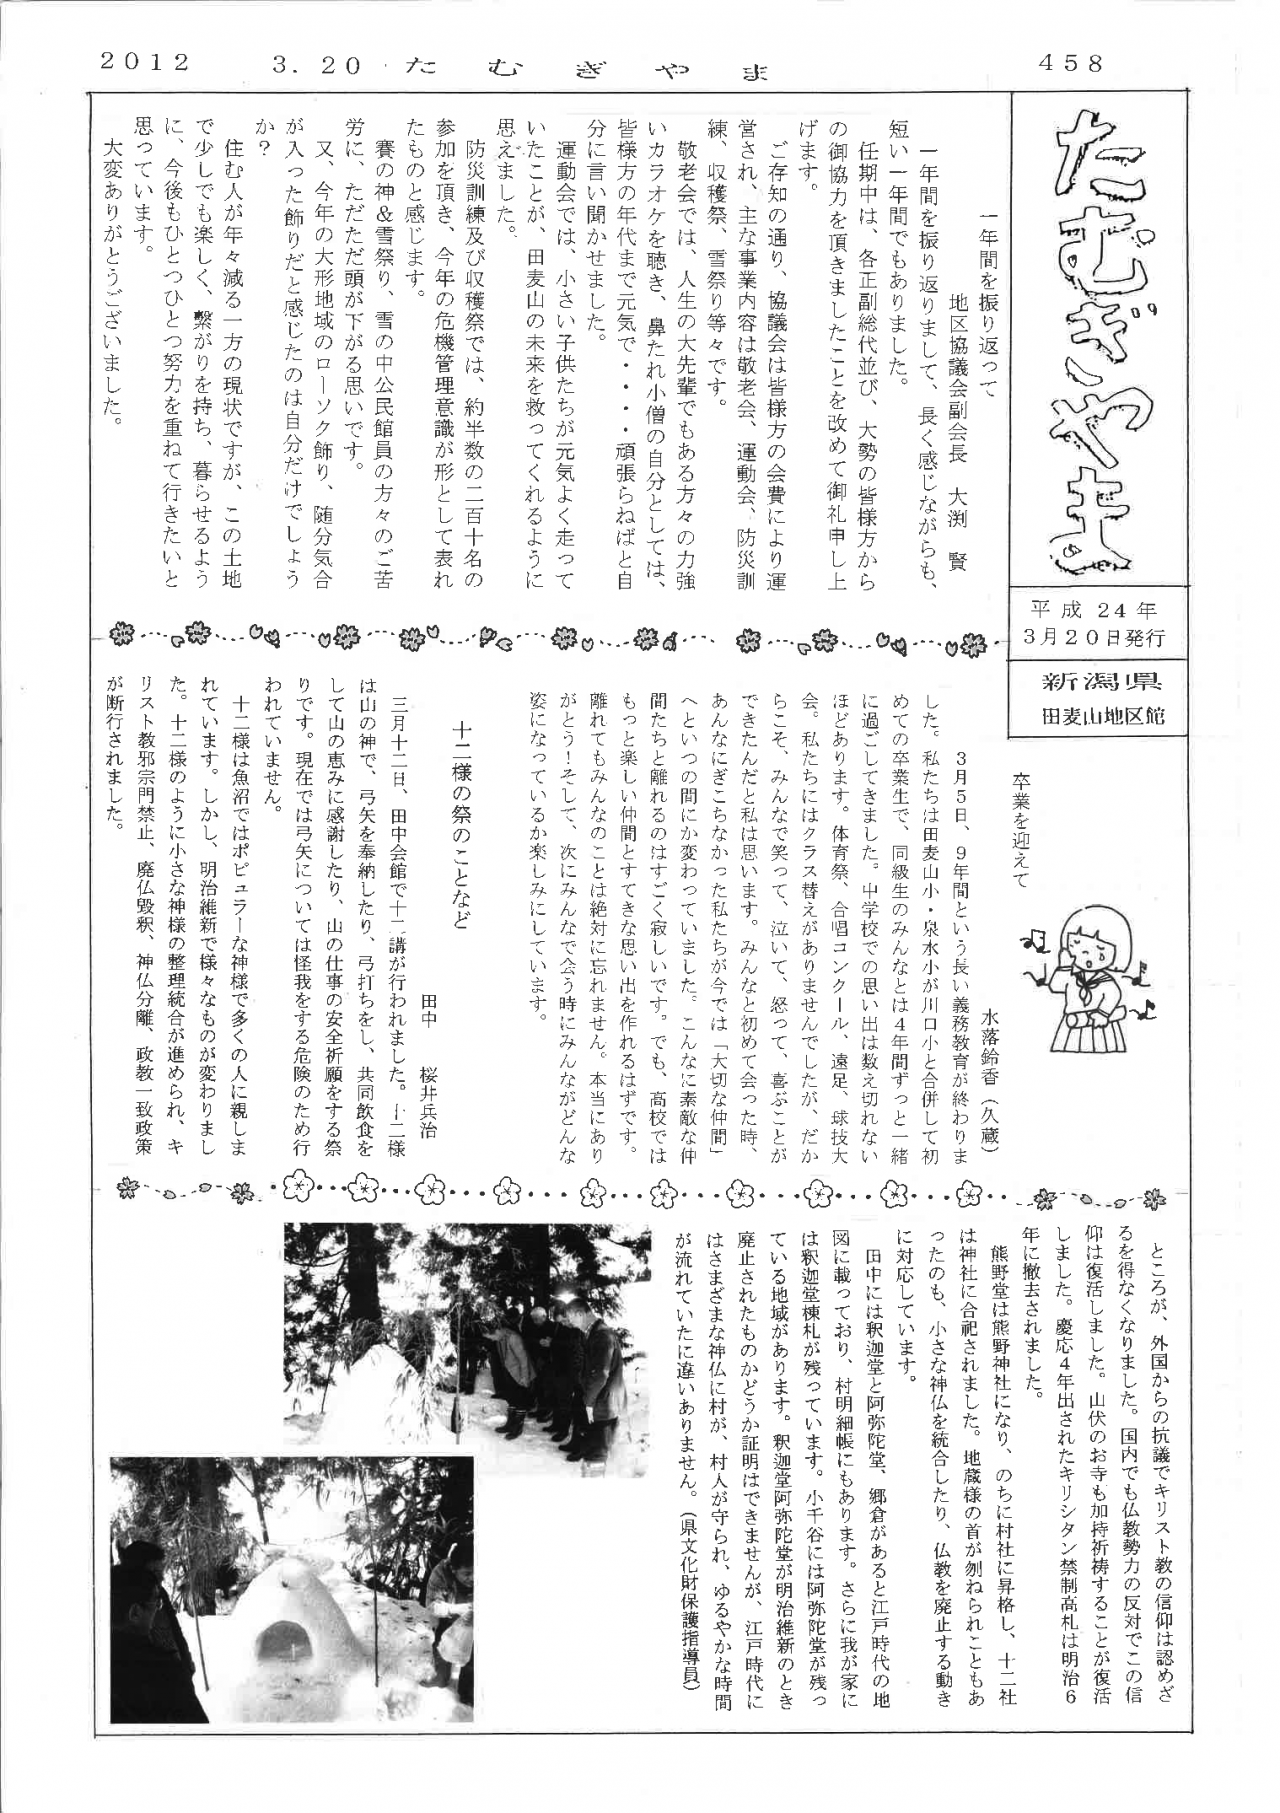 2012 3.20 たむぎやま 458
たむぎやま
平成24年
3月20日発行
新潟県
田麦山地区館
一年間を振り返って
地区協議会副会長 大渕 賢
一年間を振り返りまして、長く感じながらも、
短い一年間でもありました。
任期中は、各正副総代並び、大勢の皆様方から
の御協力を頂きましたことを改めて御礼申し上
げます。
ご存知の通り、協議会は皆様方の会費により運
営され、主な事業内容は敬老会、運動会、防災訓
練、収穫祭、雪祭り等々です。
敬老会では、人生の大先輩でもある方々の力強
いカラオケを聴き、鼻たれ小僧の自分としては、
皆様方の年代まで元気で・・・・頑張らねばと自
分に言い聞かせました。
運動会では、小さい子供たちが元気よく走って
いたことが、田麦山の未来を救ってくれるように
思えました。
防災訓練及び収穫祭では、約半数の二百十名の
参加を頂き、今年の危機管理意識が形として表れ
たものと感じます。
賽の神&雪祭り、雪の中公民館員の方々のご苦
労に、ただただ頭が下がる思いです。
又、今年の大形地域のローソク飾り、随分気合
が入った飾りだと感じたのは自分だけでしょう
か?
住む人が年々減る一方の現状ですが、この土地
で少しでも楽しく、繋がりを持ち、暮らせるよう
に、今後もひとつひとつ努力を重ねて行きたいと
思っています。
大変ありがとうございました。
卒業を迎えて
水落鈴香(久蔵)
3月5日、9年間という長い義務教育が終わりま
した。私たちは田麦山小・泉水小が川口小と合併して初
めての卒業生で、同級生のみんなとは4年間ずっと一緒
に過ごしてきました。中学校での思い出は数え切れない
ほどあります。体育祭、合唱コンクール、遠足、球技大
会。私たちにはクラス替えがありませんでしたが、だか
らこそ、みんなで笑って、泣いて、怒って、喜ぶことが
できたんだと私は思います。みんなと初めて会った時、
あんなにぎこちなかった私たちが今では「大切な仲間」
へといつの間にか変わっていました。こんなに素敵な仲
間たちと離れるのはすごく寂しいです。でも、高校では
もっと楽しい仲間とすてきな思い出を作れるはずです。
離れてもみんなのことは絶対に忘れません。本当にあり
がとう!そして、次にみんなで会う時にみんながどんな
姿になっているか楽しみにしています。
十二様の祭のことなど
田中 桜井兵治
三月十二日、田中会館で十二講が行われました。十二様
は山の神で、弓矢を奉納したり、弓打ちをし、共同飲食を
して山の恵みに感謝したり、山の仕事の安全祈願をする祭
りです。現在では弓矢については怪我をする危険のため行
われていません。
十二様は魚沼ではポピュラーな神様で多くの人に親しま
れています。しかし、明治維新で様々なものが変わりまし
た。十二様のように小さな神様の整理統合が進められ、キ
リスト教邪宗門禁止、廃仏毀釈、神仏分離、政教一致政策
が断行されました。
ところが、外国からの抗議でキリスト教の信仰は認めざ
るを得なくなりました。国内でも仏教勢力の反対でこの信
仰は復活しました。山伏のお寺も加持祈祷することが復活
しました。慶応4年出されたキリシタン禁制高札は明治6
年に撤去されました。
熊野堂は熊野神社になり、のちに村社に昇格し、十二社
は神社に合祀されました。地蔵様の首が刎ねられこともあ
ったのも、小さな神仏を統合したり、仏教を廃止する動き
に対応しています。
田中には釈迦堂と阿弥陀堂、郷倉があると江戸時代の地
図に載っており、村明細帳にもあります。さらに我が家に
は釈迦堂棟札が残っています。小千谷には阿弥陀堂が残っ
ている地域があります。釈迦堂阿弥陀堂が明治維新のとき
廃止されたものかどうか証明はできませんが、江戸時代に
はさまざまな神仏に村が、村人が守られ、ゆるやかな時間
が流れていたに違いありません。(県文化財保護指導員)